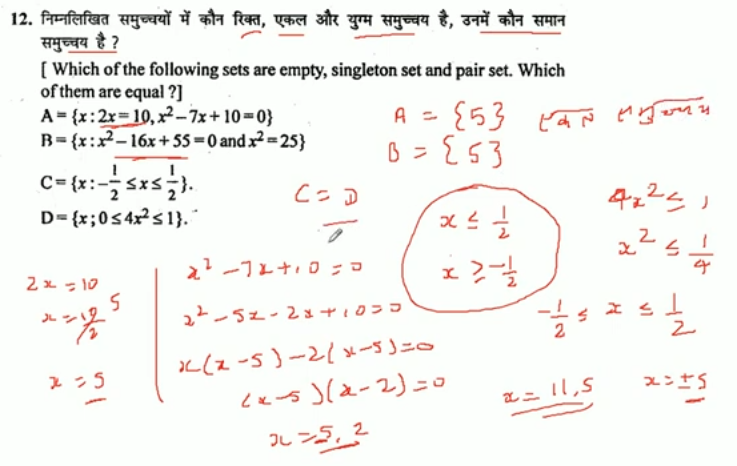 12. निम्नलिखित समुच्चयों में कौन रिक्त, एकल और युग्म समुच्चय है, उनमें कौन समान
समुच्चय है ?
[ Which of the following sets are empty, singleton set and pair set. Which
of them are equal ?]
A = {x : 2x = 10, x² – 7x + 10 = 0}
B = {x : x² – 16x + 55 = 0 and x² = 25}
C = {x : – 1/2 ≤ x ≤ 1/2}.
D = {x ; 0 ≤ 4x² ≤ 1}.
A = {5} एकल समुच्चय
B = {5}
C = D
x ≤ 1/2
x ≥ -1/2
4x² ≤ 1
x² ≤ 1/4
-1/2 ≤ x ≤ 1/2
2x = 10
x = 10/2 5
x = 5
x² - 7x + 10 = 0
x² - 5x - 2x + 10 = 0
x(x - 5) - 2(x - 5) = 0
(x - 5)(x - 2) = 0
x = 5, 2
x = 11, 5
x = ±5